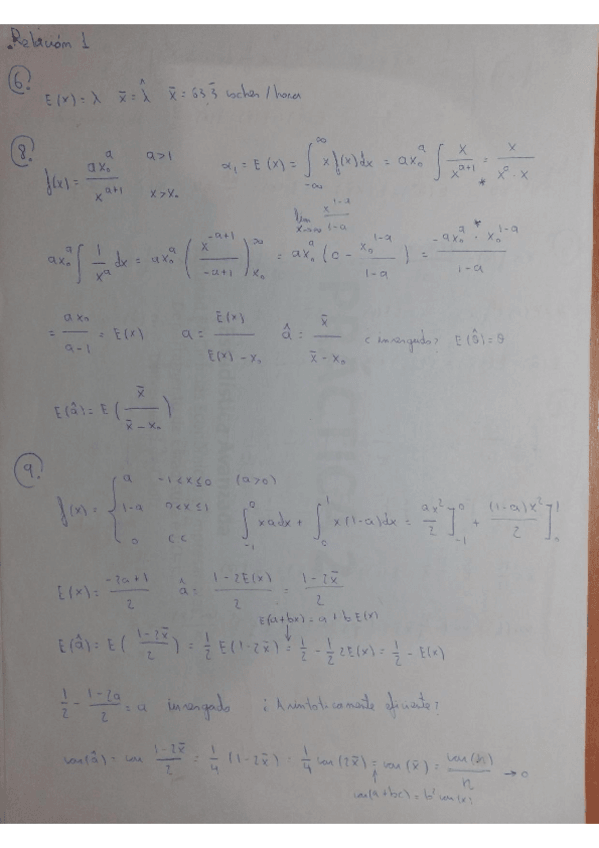 Relación 1
6. E(x) = λ  x̄ = λ̂  x̄ = 63.3 coches / hora
8. f(x) = a x₀^a / x^(a+1)  a>1  x>x₀  α₁ = E(x) = ∫_{-∞}^{∞} x f(x) dx = a x₀^a ∫ x / x^(a+1) * = x / (x^a · x)
lim_{x→∞} x^(1-a) / (1-a)
a x₀^a ∫ 1/x^a dx = a x₀^a ( x^(-a+1) / (-a+1) )_{x₀}^{∞} = a x₀^a ( 0 - x₀^(1-a) / (1-a) ) = -a x₀^a * · x₀^(1-a) / (1-a)
= a x₀ / (a-1) = E(x)  a = E(x) / (E(x) - x₀)  â = x̄ / (x̄ - x₀)  ¿ insesgado?  E(â) =
E(â) = E ( x̄ / (x̄ - x₀) )
9. f(x) = { a  -1<x≤0  (a>0)
1-a  0<x≤1
0  cc
∫_{-1}^{0} x a dx + ∫_{0}^{1} x (1-a) dx = a x² / 2 ]_{-1}^{0} + (1-a) x² / 2 ]_{0}^{1}
E(x) = (-2a+1) / 2  â = (1-2E(x)) / 2 = (1-2x̄) / 2
E(a+bx) = a + b E(x)
E(â) = E ( (1-2x̄) / 2 ) = 1/2 E (1-2x̄) = 1/2 - 1/2 2E(x) = 1/2 - E(x)
1/2 - (1-2a) / 2 = a  insesgado  ¿ Asintóticamente eficiente?
var(â) = var (1-2x̄) / 2 = 1/4 (1-2x̄) = 1/4 var (2x̄) = var (x̄) = var( ) / n → 0
var(a+bx) = b² var(x)